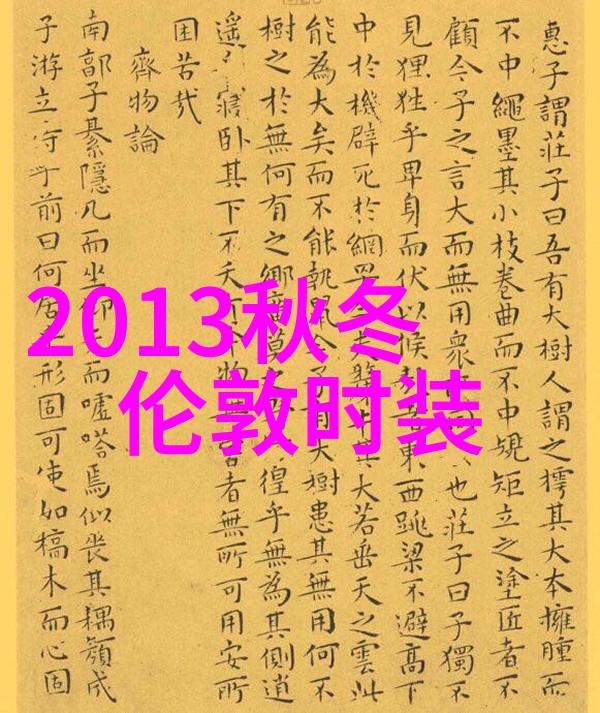 2013秋冬
伦敦时装
惠子謂莊子曰吾有大樹人謂之樗其大本擁腫而
不中繩墨其小枝卷曲而不中規矩立之塗匠者不
顧今子之言大而無用衆也莊子曰子獨不
見狸狌乎卑身而伏以候敖者東西跳梁不避高下
中於機辟死於網罟夫斄牛其大若垂天之雲此
能為大矣而不能執鼠今子有大樹患其無用何不
樹之於無何有之鄉廣莫之徨乎無為其側逍
遥寢卧其下不夭斤物害者無所可用安所
困苦哉
齊物論
南郭子綦隱几而坐仰天而噓嗒焉似喪其耦顏成
子游立侍乎前曰何居形固可使如槁木而心固